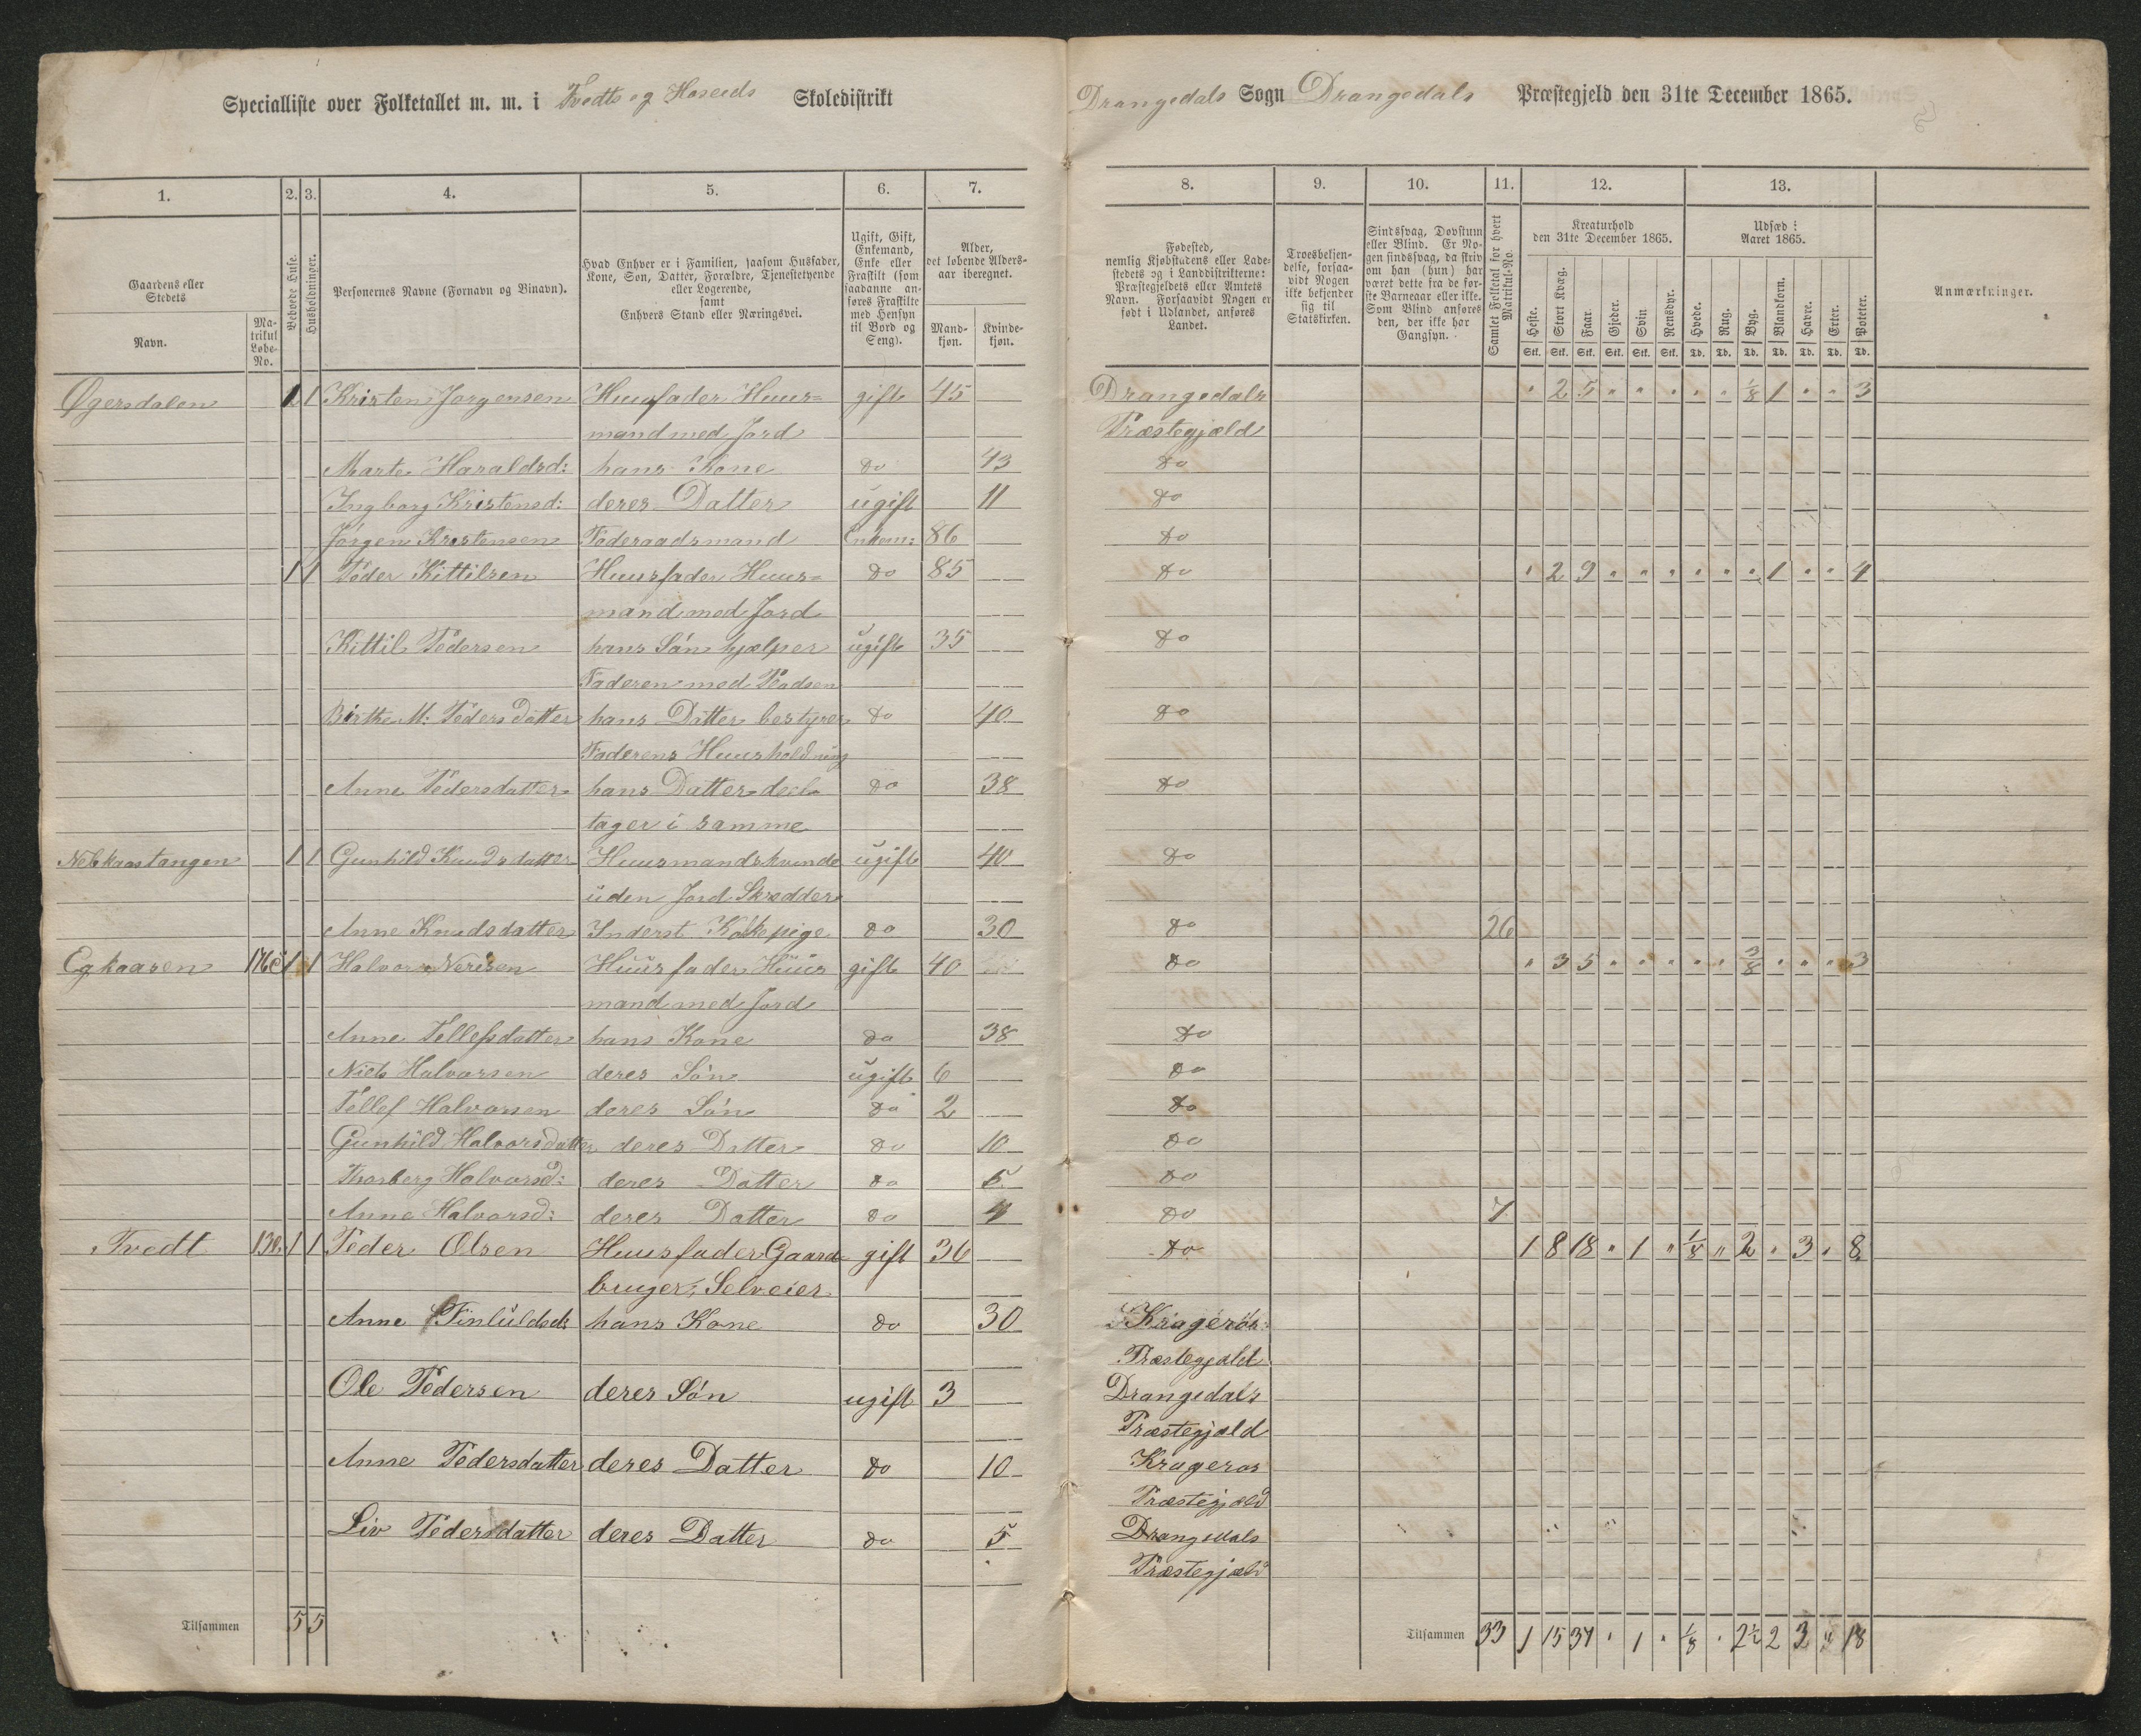 Specialliste over Folketallet m. m. i Tvedts og Skoledistrikt
Drangedals Sogn Drangedals Præstegjeld den 31te December 1865.
1. 2. 3. 4. 5. 6. 7. 8. 9. 10. 11. 12. 13.
Gaardens eller Stedets
Navn.
Matrikul Løbe-No.
Beboede Huse.
Husholdninger.
Personernes Navne (Fornavn og Binavn).
Hvad Enhver er i Familien, saasom Husfader, Kone, Søn, Datter, Forældre, Tjenestetyende eller Logerende, samt Enhvers Stand eller Næringsvei.
Ugift, Gift, Enkemand, Enke eller Fraskilt (som saadanne anføres Fraskilte med Hensyn til Bord og Seng).
Alder, det løbende Alders-aar iberegnet.
Mandkjøn. Kvindekjøn.
Fødested, nemlig Kjøbstadens eller Ladestedets og i Landdistrikterne: Præstegjeldets eller Amtets Navn. Forsaavidt Nogen er født i Udlandet, anføres Landet.
Troesbekjendelse, forsaavidt Nogen ikke bekjender sig til Statskirken.
Sindssvag, Døvstum eller Blind. Er Nogen sindssvag, da skriv om han (hun) har været dette fra de første Barneaar eller ikke. Som Blind anføres den, der ikke har Gangsyn.
Samlet Folketal for hvert Matrikul-No.
Kreaturhold den 31te December 1865.
Heste. Stort Kvæg. Faar. Gjeder. Svin Rensdyr.
Udsæd i Aaret 1865.
Hvede. Rug. Byg. Blandkorn. Havre. Erter. Poteter.
Stk. Stk. Stk. Stk. Stk. Stk. Td. Td. Td. Td. Td. Td. Td.
Anmærkninger.
Øgersdalen 1 1 Kristen Jørgensen Huusfader Huus= gift 45 Drangedals " 2 5 " " " " " 1/8 1 " " 3
mand med Jord Præstegjæld
Marte Haraldsd: hans Kone do 43 do
Ingborg Kristensd: deres Datter ugift 11 do
Jørgen Kristensen Føderaadsmand Enkem: 86 do
1 1 Peder Kittilsen Huusfader Huus= do 85 do " 2 9 " " " " " " 1 " " 4
mand med Jord
Kittil Pedersen hans Søn hjælper ugift 35 do
Faderen med Pladsen
Birthe M: Pedersdatter hans Datter bestyrer do 40 do
Faderens Huusholdning
Anne Pedersdatter hans Datter deel= do 38 do
tager i samme
Nebkaastangen 1 1 Gunhild Knudsdatter Huusmandskvinde ugift 40 do
uden Jord Skrædder
Anne Knudsdatter Inderst Kokkepige do 30 do 26
Egkaasen 176c 1 1 Halvor Nerisen Huusfader Huus gift 40 do " 3 5 " " " " " 3/8 " " " 3
mand med Jord
Anne Tellefsdatter hans Kone do 38 do
Niels Halvorsen deres Søn ugift 6 do
Tellef Halvorsen deres Søn do 2 do
Gunhild Halvorsdatter deres Datter do 10 do
Thorberg Halvorsd: deres Datter do 5 do
Anne Halvorsd: deres Datter do 4 do 7
Tvedt 130. 1 1 Peder Olsen Huusfader Gaard gift 36 do 1 8 18 " 1 " 1/8 " 2 " 3 " 8
bruger, Selveier
Anne hans Kone do 30 Kragerøs
Præstegjæld
Ole Pedersen deres Søn ugift 3 Drangedals
Præstegjæld
Anne Pedersdatter deres Datter do 10 Kragerøs
Præstegjæld
Liv Pedersdatter deres Datter do 5 Drangedals
Præstegjæld
Tilsammen 5 5
Tilsammen 33 1 15 37 " 1 " 1/8 " 2½ 2 3 " 18